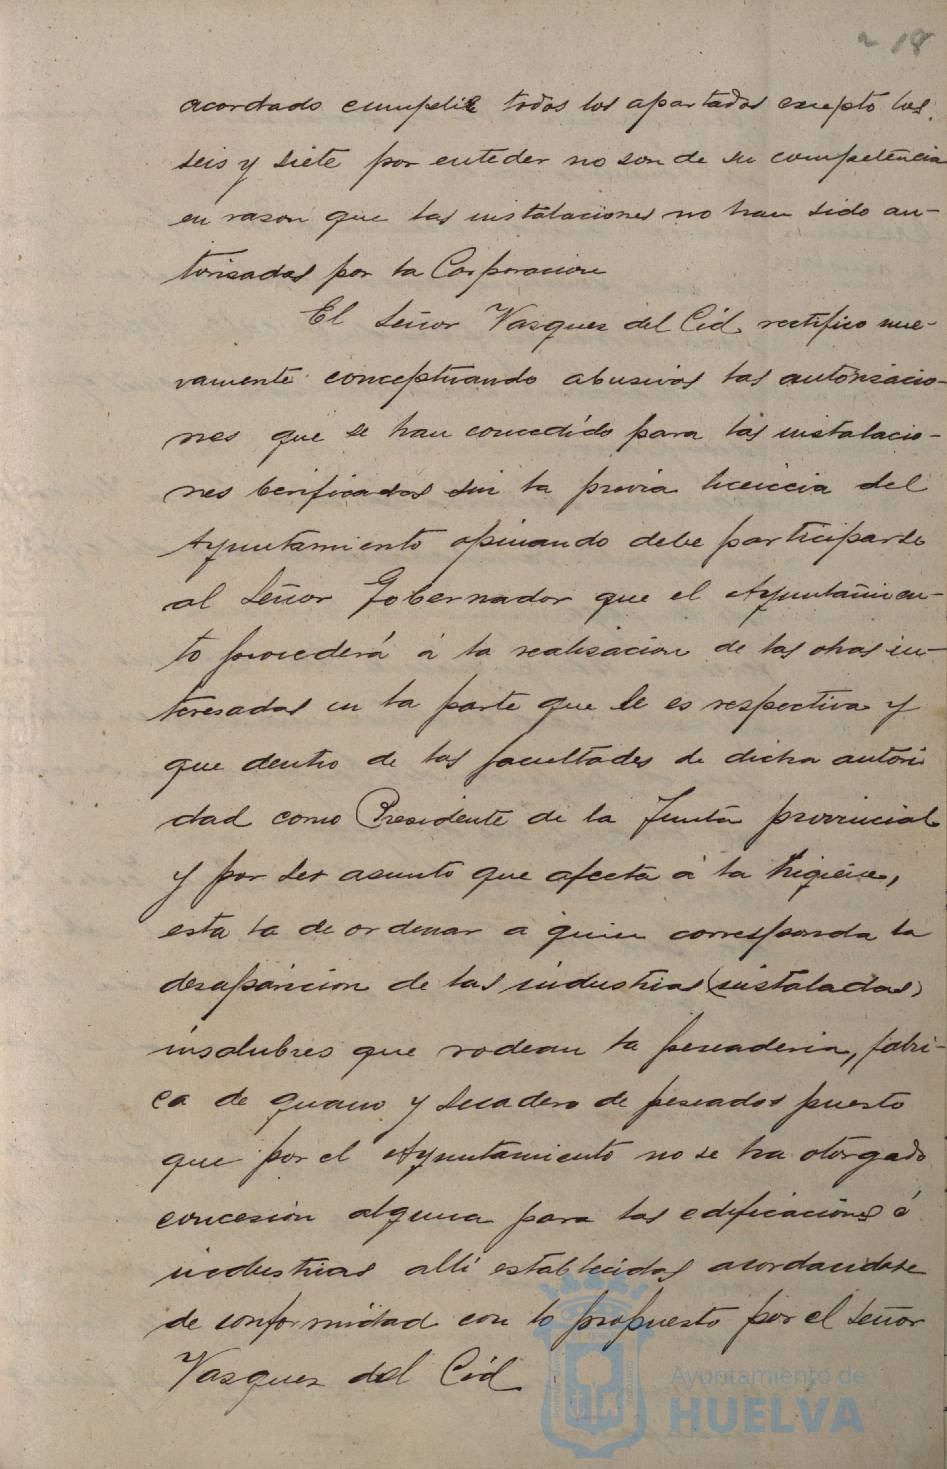 18
acordado cumplir todos los apartados excepto los
seis y siete por enteder no son de su competencia
en rason que las instalaciones no han sido au-
torisadas por la Corporacion
El Señor Vasques del Cid rectifico nue-
vamente conceptuando abusivas las autorisacio-
nes que se han concedido para las instalacio-
nes berificadas sin la previa licencia del
Ayuntamiento opinando debe participarse
al Señor Gobernador que el Ayuntamien-
to procederá á la realisacion de las obras in-
teresadas en la parte que le es respectiva y
que dentro de las facultades de dicha autori
dad como Presidente de la Junta provincial
y por ser asunto que afecta á la higiene,
esta la de ordenar a quien corresponda la
desaparicion de las industrias (instaladas)
insalubres que rodean la pescaderia, fabri-
ca de guano y secadero de pescados puesto
que por el Ayuntamiento no se ha otorgado
concesion alguna para las edificaciones é
industrias alli establecidas acordandose
de conformidad con lo propuesto por el Señor
Vasques del Cid
Ayuntamiento de
HUELVA